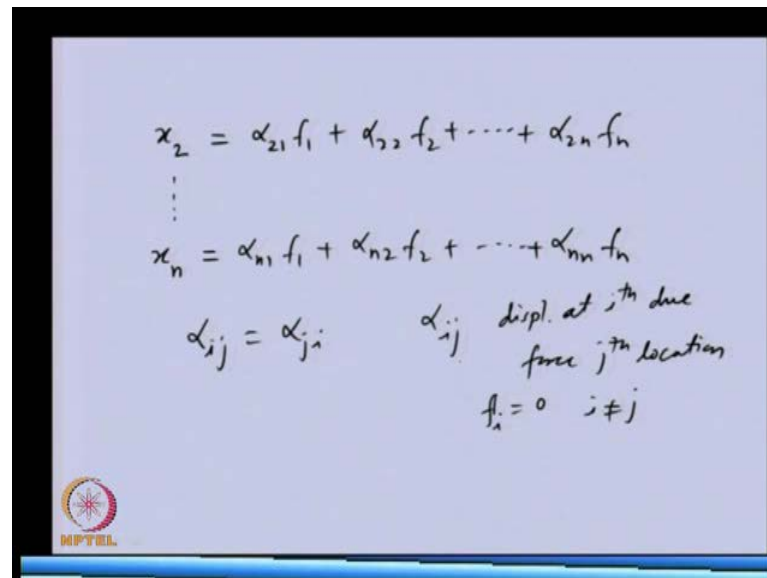 x₂ = α₂₁ f₁ + α₂₂ f₂ + ---- + α₂ₙ fₙ
⋮
xₙ = αₙ₁ f₁ + αₙ₂ f₂ + ---- + αₙₙ fₙ
αᵢⱼ = αⱼᵢ αᵢⱼ displ. at iᵗʰ due
force jᵗʰ location
fᵢ = 0 i ≠ j
NPTEL